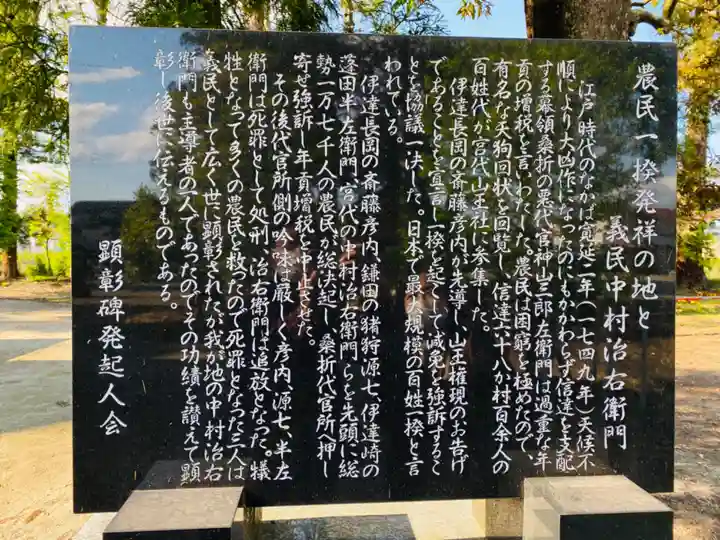 農民一揆発祥の地と
義民中村治右衛門
江戸時代のなかば寛延二年(一七四九年)天候不
順により大凶作になったのにもかかわらず信達を支配
する幕領桑折の悪代官神山三郎左衛門は過重な年
貢の増税を言いわたした。農民は困窮を極めたので、
有名な天狗回状を回覧し、信達六十八か村百余人の
百姓代が、宮代山王社に参集した。
伊達長岡の斎藤彦内が先導し、山王権現のお告げ
であることを宣言し一揆を起こして減免を強訴するこ
とを協議一決した。日本で最大規模の百姓一揆と言
われている。
伊達長岡の斎藤彦内、鎌田の猪狩源七、伊達崎の
蓬田半左衛門、宮代の中村治右衛門らを先頭に総
勢一万七千人の農民が総決起し、桑折代官所へ押し
寄せ強訴し年貢増税を中止させた。
その後代官所側の吟味は厳しく彦内、源七、半左
衛門は死罪として処刑、治右衛門は追放となった。犠
牲となって多くの農民を救ったので死罪となった三人は
義民として広く世に顕彰されたが我が地の中村治右
衛門も主導者の一人であったのでその功績を讃えて顕
彰し後世に伝えるものである。
顕彰碑発起人会